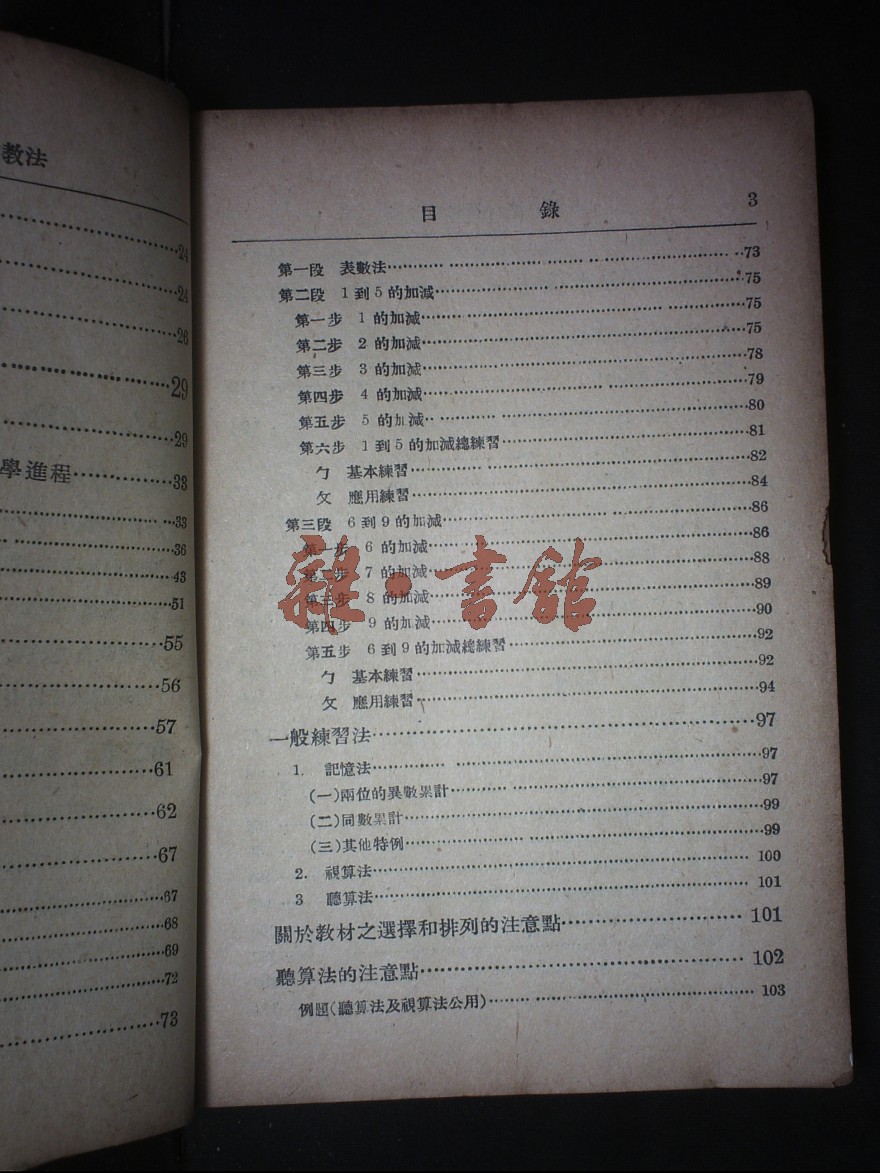 教法
24
24
26
29
29
學進程…………33
33
36
43
51
55
56
57
61
62
67
67
68
69
72
73
目 錄 3
第一段 表數法…………73
第二段 1 到 5 的加減…………75
第一步 1 的加減…………75
第二步 2 的加減…………75
第三步 3 的加減…………78
第四步 4 的加減…………79
第五步 5 的加減…………80
第六步 1 到 5 的加減總練習…………81
ㄅ 基本練習…………82
ㄆ 應用練習…………84
第三段 6 到 9 的加減…………86
第一步 6 的加減…………86
第二步 7 的加減…………88
第三步 8 的加減…………89
第四步 9 的加減…………90
第五步 6 到 9 的加減總練習…………92
ㄅ 基本練習…………92
ㄆ 應用練習…………94
一般練習法…………97
1. 記憶法…………97
(一)兩位的異數累計…………97
(二)同數累計…………99
(三)其他特例…………99
2. 視算法…………100
3 聽算法…………101
關於教材之選擇和排列的注意點…………101
聽算法的注意點…………102
例題(聽算法及視算法公用)…………103
雜·書館